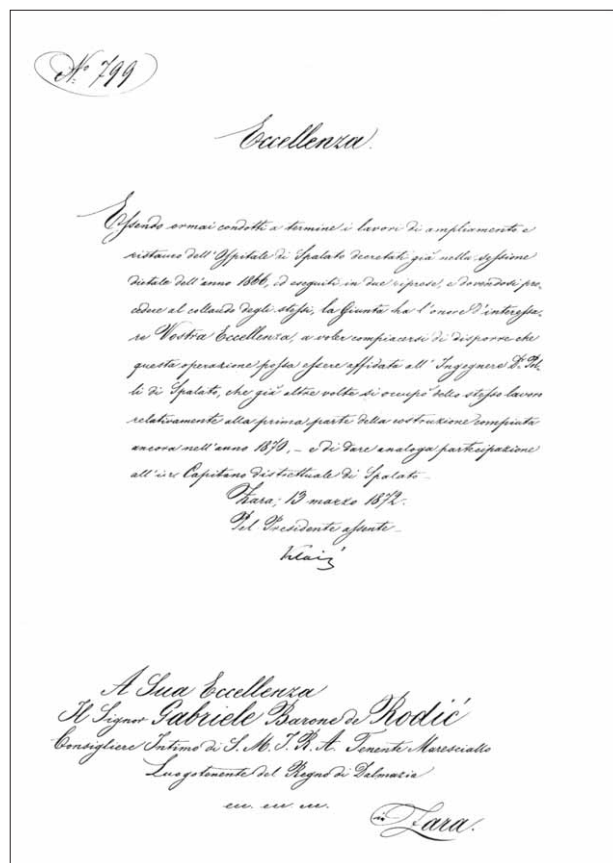 N.º 799
Eccellenza.
Essendo ormai condotti a termine i lavori di ampliamento e
ristauro dell'Ospitale di Spalato decretati già nella sessione
dietale dell'anno 1866, ed eseguiti in due riprese, e dovendosi pro,
cedere al collaudo degli stessi, la Giunta ha l'onore d'interessa,
re Vostra Eccellenza, a voler compiacersi di disporre che
questa operazione possa essere affidata all'Ingegnere D.r
li di Spalato, che già altre volte si occupò dello stesso lavoro
relativamente alla prima parte della costruzione compiuta
ancora nell'anno 1870, – e di dare analoga partecipazione
all' Capitano distrettuale di Spalato –
Zara, 13 marzo 1872.
Pel Presidente assente –
Klaić
A Sua Eccellenza
Il Signor Gabriele Barone de Rodić
Consigliere Intimo di S. M. I. R. A. Tenente Maresciallo
Luogotenente del Regno di Dalmazia
in Zara.